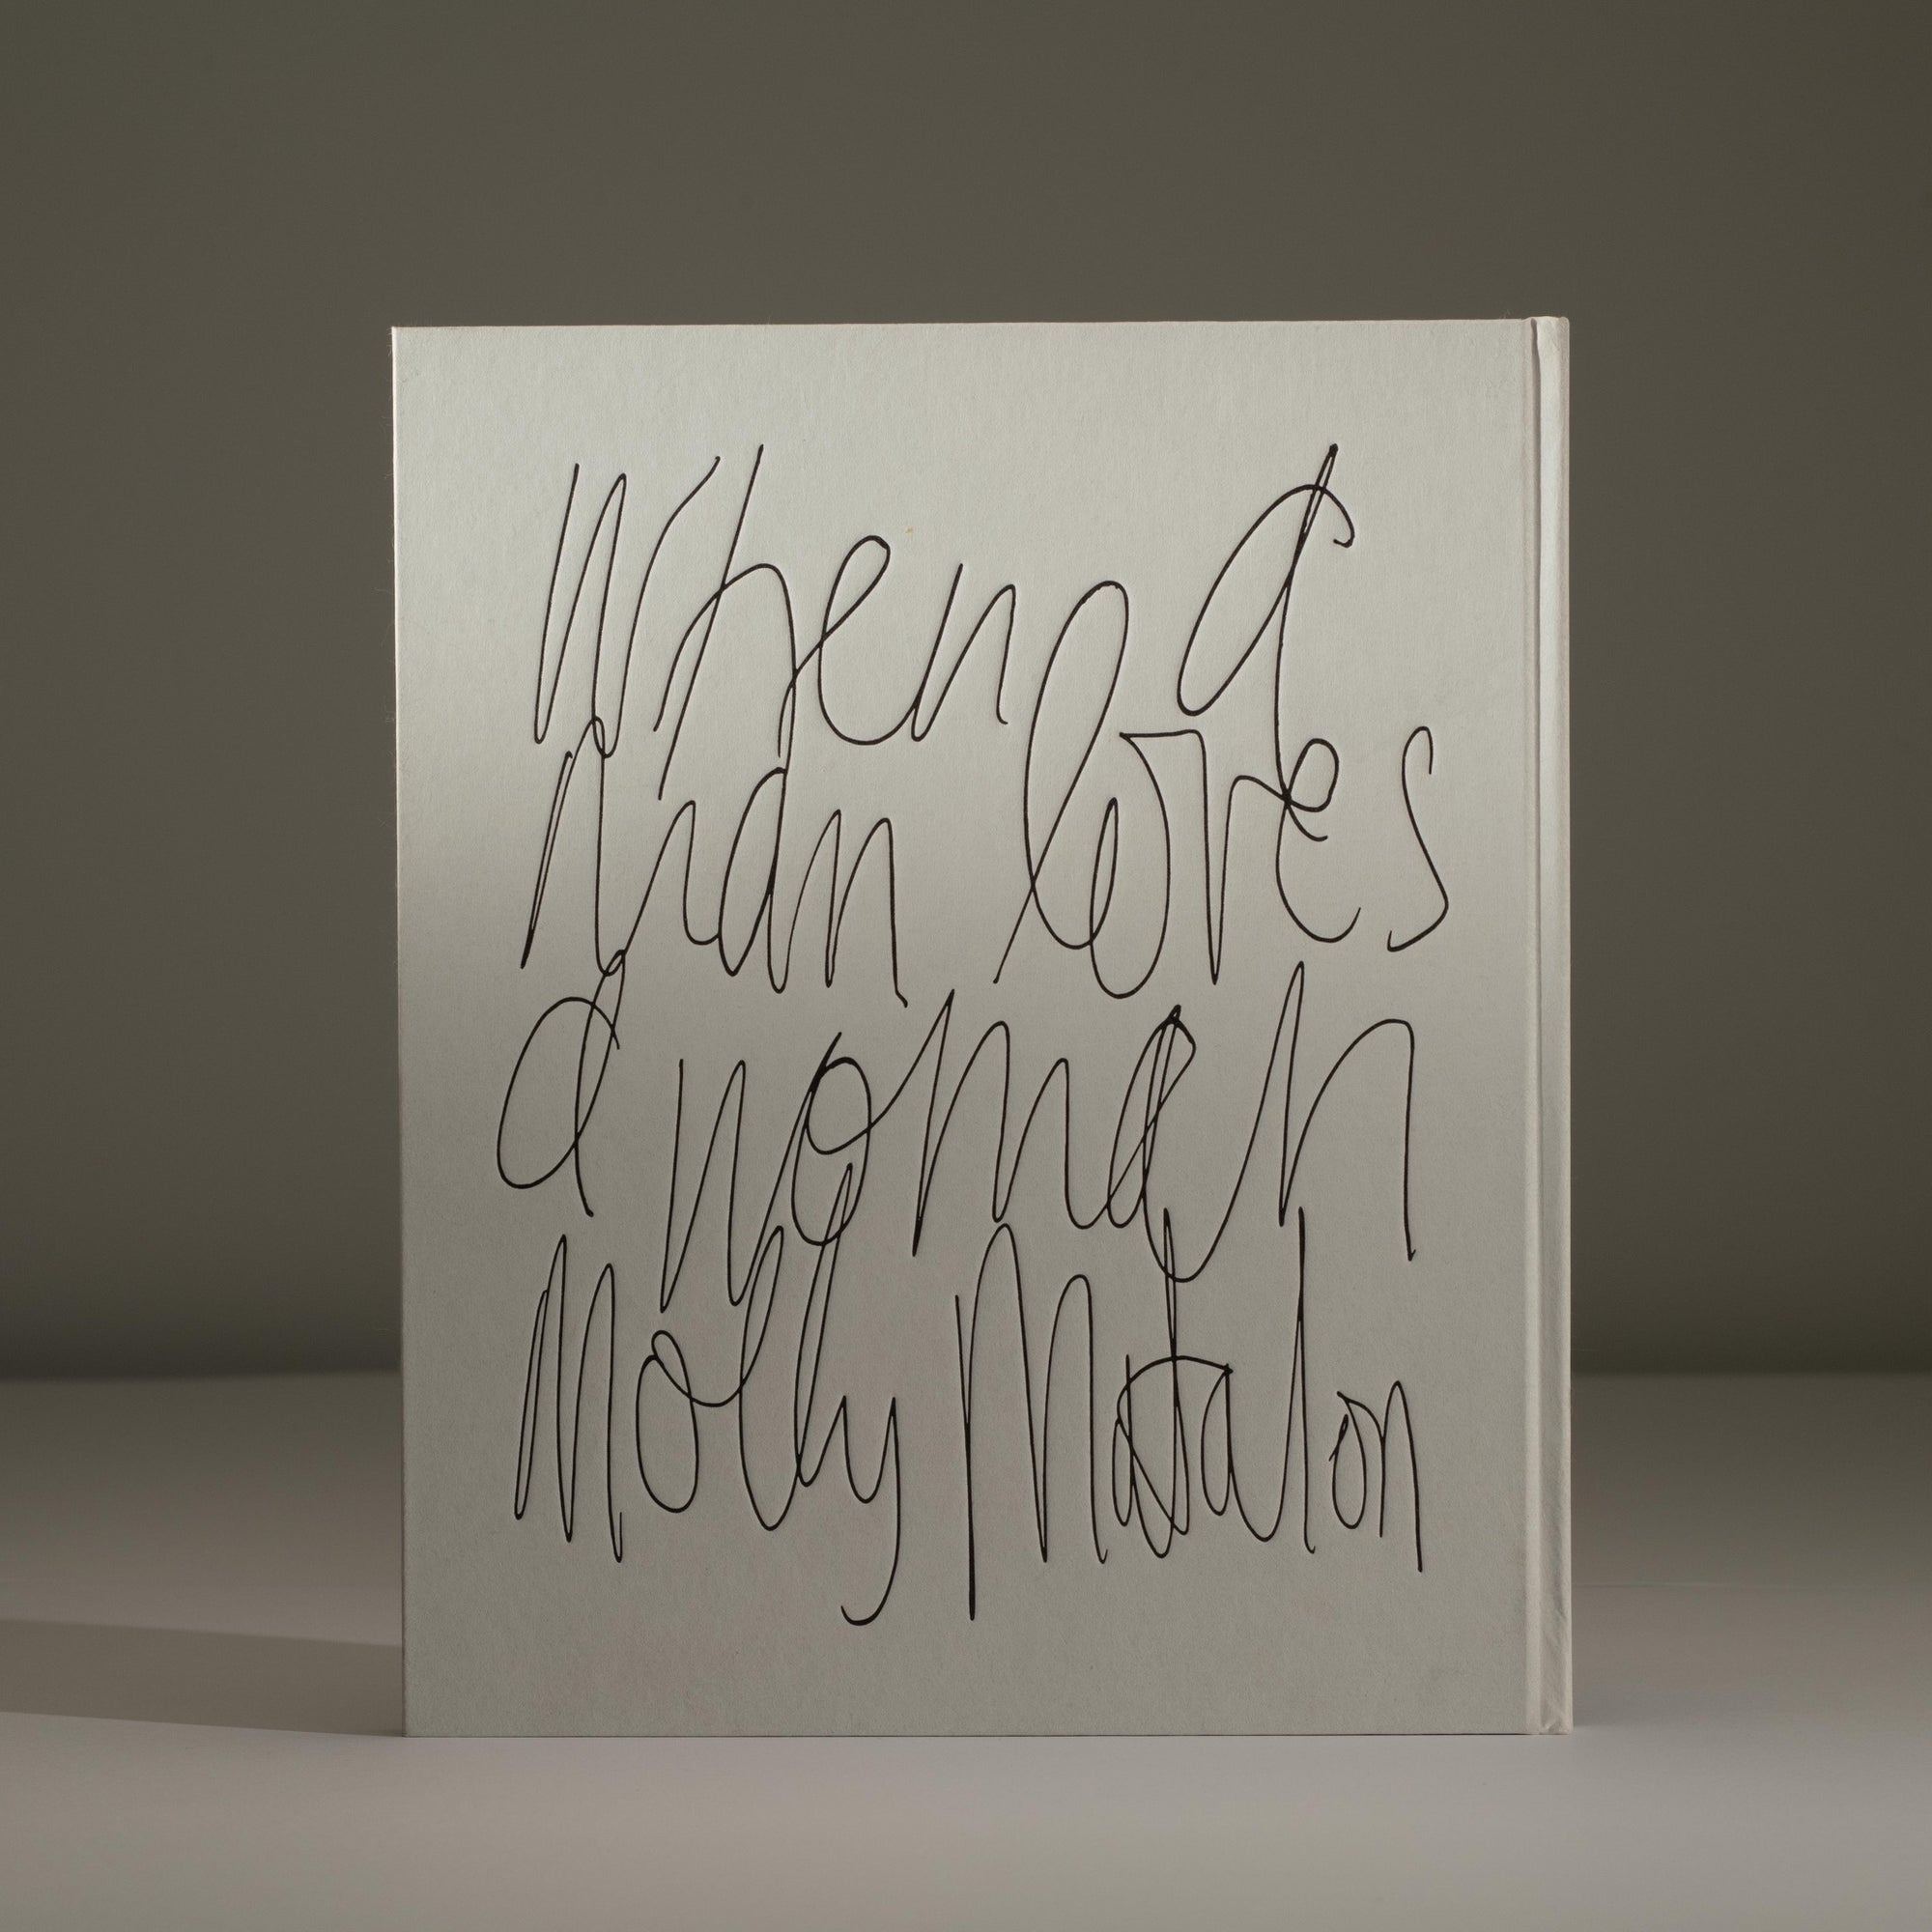 When a
man loves
a woman
Molly Matalon